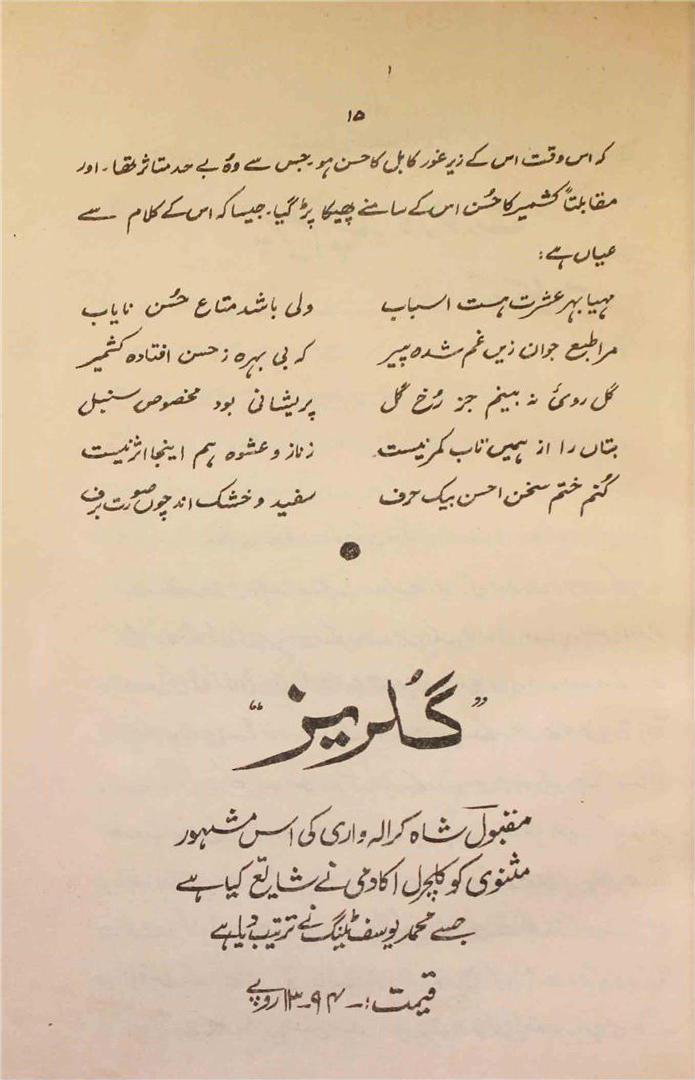 ۱
۱۵
کہ اس وقت اس کے زیر غور کابل کا حسن ہو۔ جس سے وہ بے حد متاثر تھا۔ اور
مقابلتاً کشمیر کا حُسن اس کے سامنے پھیکا پڑ گیا۔ جیسا کہ اس کے کلام سے
عیاں ہے:
مہیا بہر عشرت ہست اسباب ولی باشد متاع حُسن نایاب
مرا طبع جوان زیں غم شدہ پیر کہ بی بہرہ ز حسن افتادہ کشمیر
گل روئ نہ بینم جز رُخ گل پریشانی بود مخصوص سنبل
بتاں را از ہمیں تاب کمر نیست ز ناز و عشوہ ہم اینجا اثر نیست
کُنم ختم سخن احسن بیک حرف سفید و خشک اند چوں صورت برف
”گُلریز“
مقبول شاہ کرالہ واری کی اس مشہور
مثنوی کو کلچرل اکادمی نے شایع کیا ہے
جسے محمد یوسف ٹینگ نے ترتیب دیا ہے
قیمت:۔ ۹۴۔۱۳ روپے